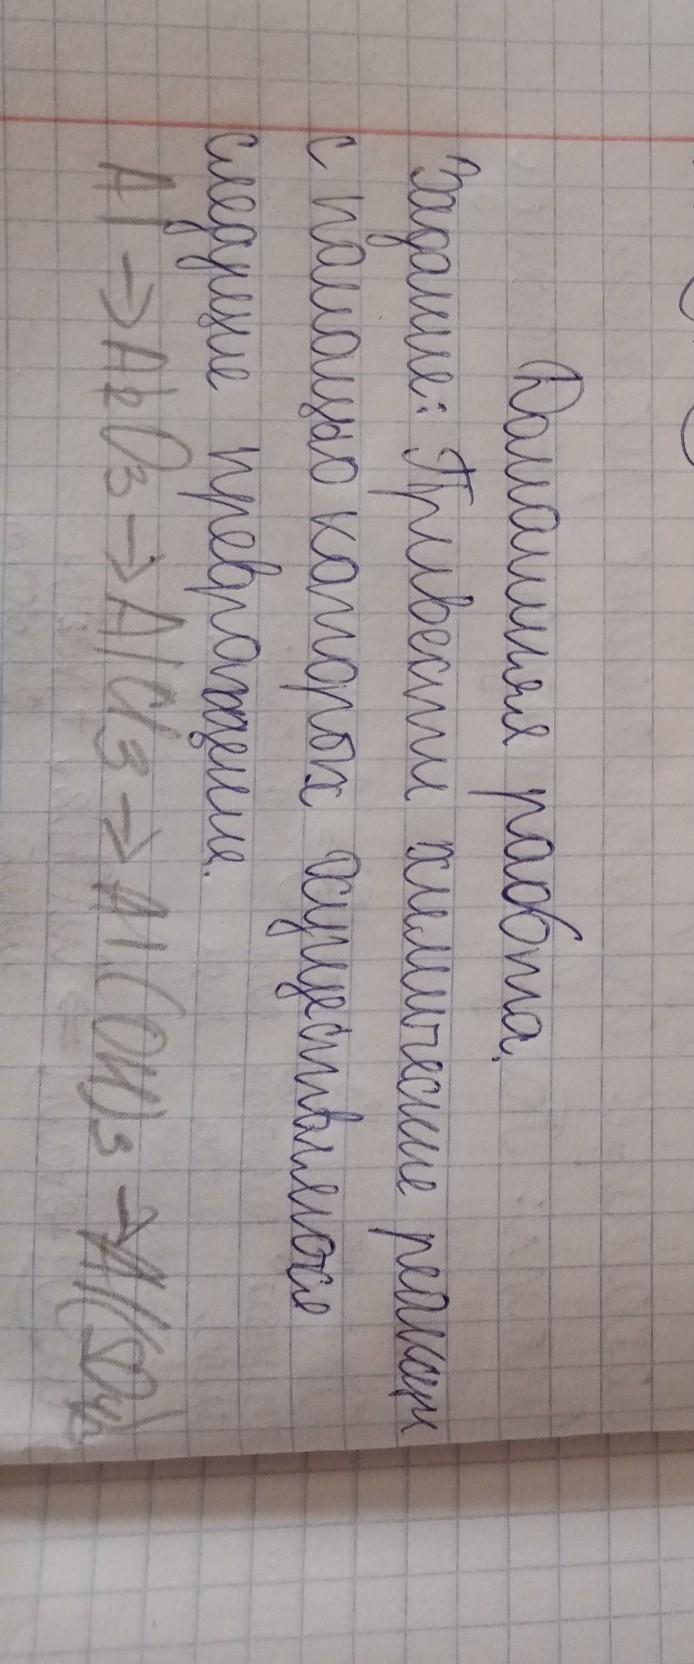 Домашняя работа.
Задание: Привести химические реакции
с помощью которых осуществляются
следущие превращения.
Al → Al2O3 → AlCl3 → Al(OH)3 → Al(SO4)